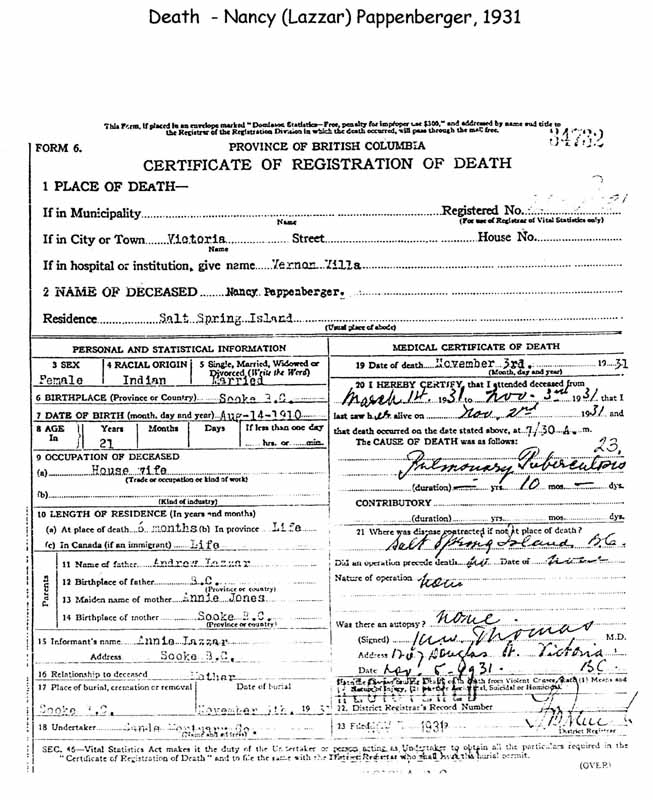 Death - Nancy (Lazzar) Pappenberger, 1931
This Form, if placed in an envelope marked "Dominion Statistics—Free, penalty for improper use $300," and addressed by name and title to
the Registrar of the Registration Division in which the death occurred, will pass through the mail free.
34732
FORM 6.
PROVINCE OF BRITISH COLUMBIA
CERTIFICATE OF REGISTRATION OF DEATH
1 PLACE OF DEATH—
If in Municipality Registered No.
Name (For use of Registrar of Vital Statistics only)
If in City or Town Victoria Street House No.
Name
If in hospital or institution, give name Vernon Villa
2 NAME OF DECEASED Nancy Pappenberger.
Residence Salt Spring Island
(Usual place of abode)
PERSONAL AND STATISTICAL INFORMATION
3 SEX 4 RACIAL ORIGIN 5 Single, Married, Widowed or
Divorced (Write the Word)
Female Indian Married
6 BIRTHPLACE (Province or Country) Sooke B.C.
7 DATE OF BIRTH (month, day and year) Aug-14-1910
8 AGE Years Months Days If less than one day
In 21 hrs. or min.
9 OCCUPATION OF DECEASED
(a) House wife
(Trade or occupation or kind of work)
(b)
(Kind of industry)
10 LENGTH OF RESIDENCE (In years and months)
(a) At place of death 6 months (b) In province Life
(c) In Canada (if an immigrant) Life
Parents
11 Name of father Andrew Lazzar
12 Birthplace of father B.C.
(Province or country)
13 Maiden name of mother Annie Jones
14 Birthplace of mother Sooke B.C.
(Province or country)
15 Informant's name Annie Lazzar
Address Sooke B.C.
16 Relationship to deceased Mother
17 Place of burial, cremation or removal Date of burial
Sooke B.C. November 5th. 1931
18 Undertaker Sands Mortuary Co.
(Name and address)
MEDICAL CERTIFICATE OF DEATH
19 Date of death November 3rd. 1931
(Month, day and year)
20 I HEREBY CERTIFY, that I attended deceased from
March 1st 1931 to Nov. 3rd 1931 that I
last saw her alive on Nov 2nd 1931 and
that death occurred on the date stated above, at 7/30 A. m.
The CAUSE OF DEATH was as follows: 23.
Pulmonary Tuberculosis
(duration) — yrs. 10 mos. — dys.
CONTRIBUTORY
(duration) yrs. mos. dys.
21 Where was disease contracted if not at place of death?
Salt Spring Island B.C.
Did an operation precede death Date of
Nature of operation none
Was there an autopsy? none
(Signed) Thomas M.D.
Address Douglas St. Victoria
Date Nov 5 1931. BC.
22 District Registrar's Record Number
23 Filed 1931
District Registrar
SEC. 45—Vital Statistics Act makes it the duty of the Undertaker or person acting as Undertaker to obtain all the particulars required in the
"Certificate of Registration of Death" and to file the same with the District Registrar who shall issue the burial permit.
(OVER)